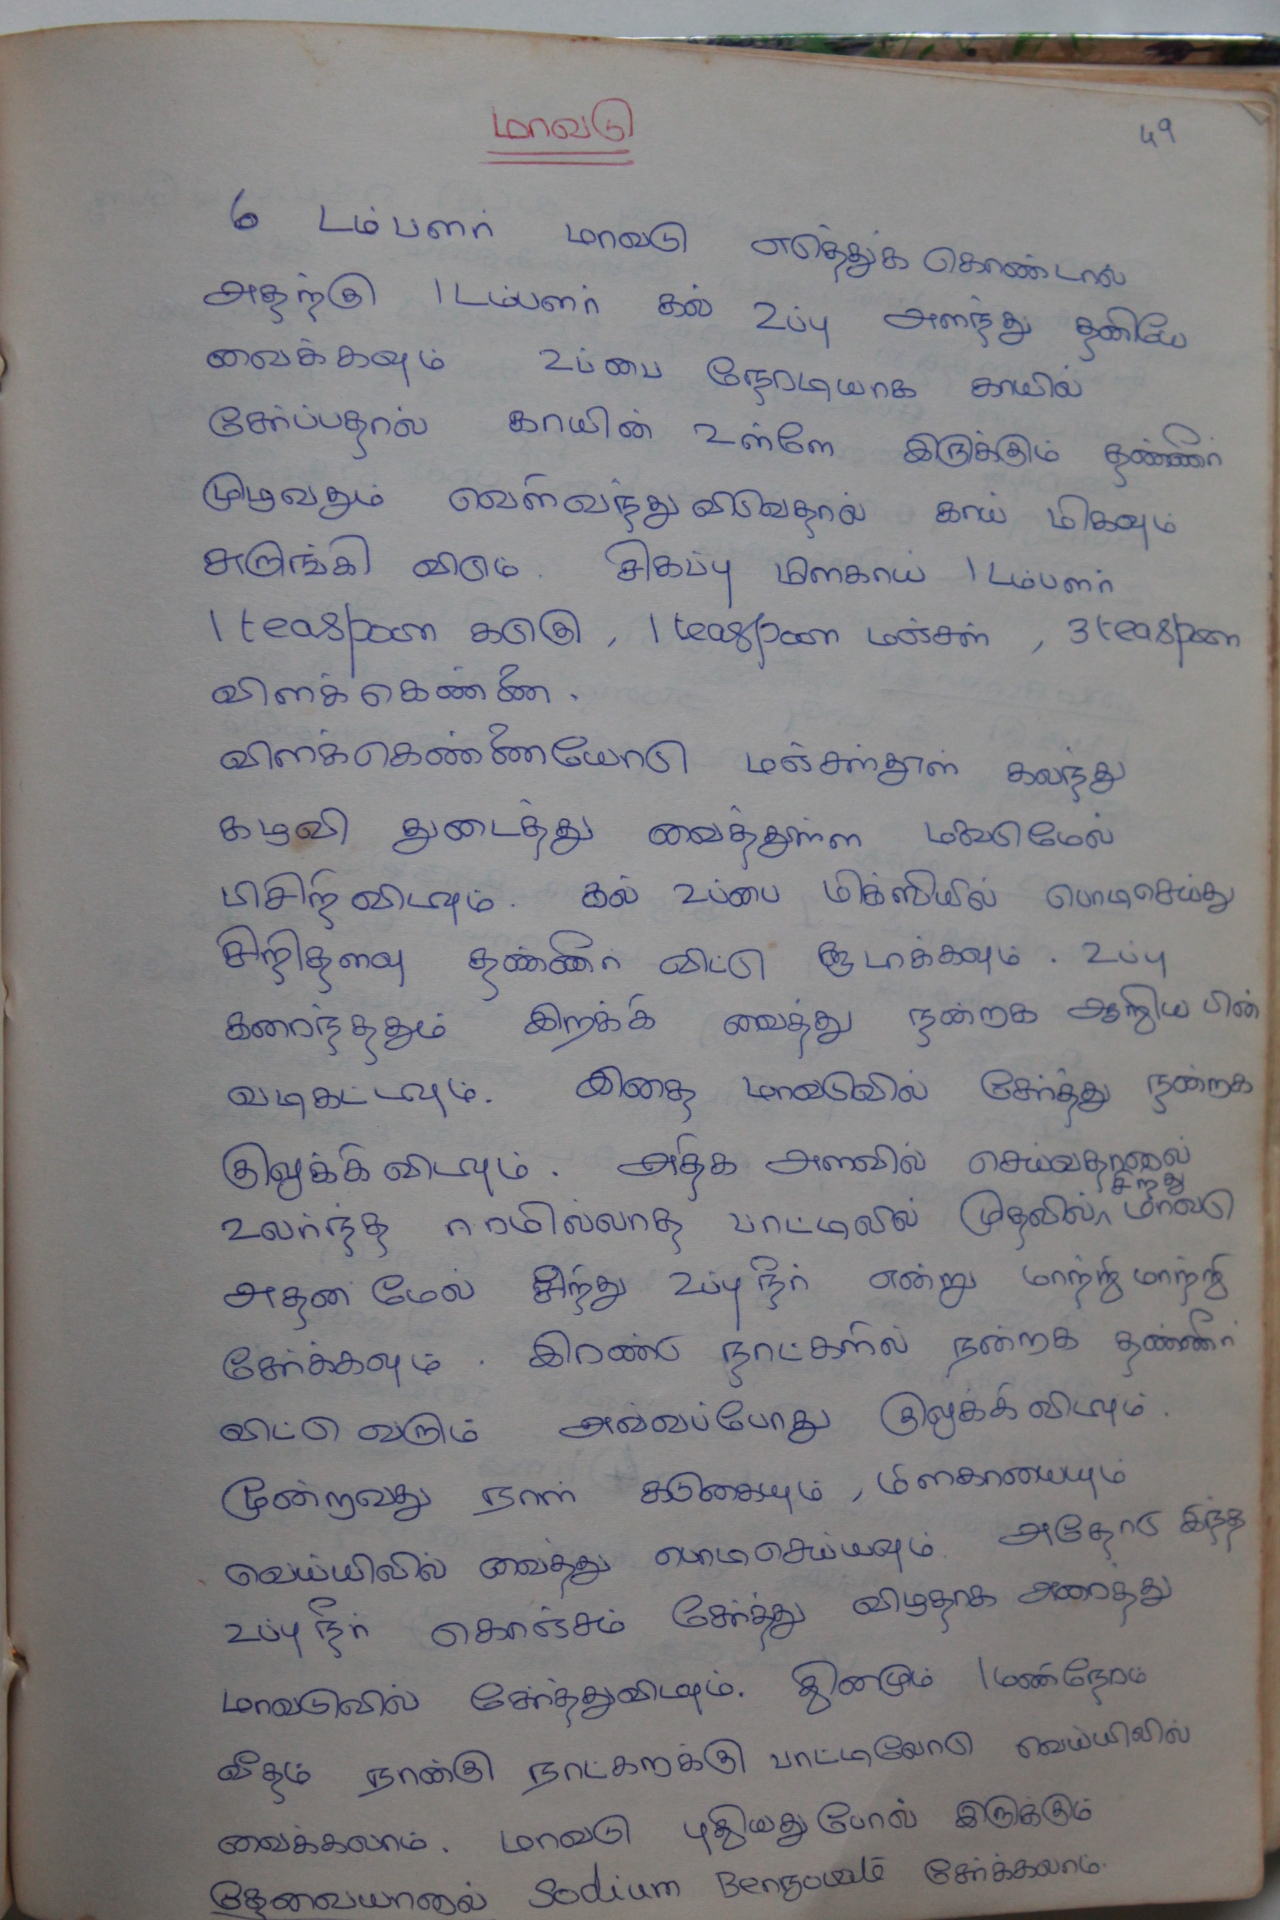 மாவடு
49
6 டம்பளர் மாவடு எடுத்துக் கொண்டால்
அதற்கு 1 டம்பளர் கல் உப்பு அளந்து தனியே
வைக்கவும் உப்பை நேரடியாக காயில்
சேர்ப்பதால் காயின் உள்ளே இருக்கும் தண்ணீர்
முழுவதும் வெளிவந்து விடுவதால் காய் மிகவும்
சுருங்கி விடும். சிகப்பு மிளகாய் 1 டம்பளர்
1 teaspoon கடுகு, 1 teaspoon மஞ்சள், 3 teaspoon
விளக்கெண்ணை.
விளக்கெண்ணையோடு மஞ்சள்தூள் கலந்து
கழுவி துடைத்து வைத்துள்ள மாவடுமேல்
பிசிறி விடவும். கல் உப்பை மிக்ஸியில் பொடிசெய்து
சிறிதளவு தண்ணீர் விட்டு சூடாக்கவும். உப்பு
கரைந்ததும் இறக்கி வைத்து நன்றாக ஆறிய பின்
வடிகட்டவும். இதை மாவடுவில் சேர்த்து நன்றாக
குலுக்கி விடவும். அதிக அளவில் செய்வதானால்
உலர்ந்த ஈரமில்லாத பாட்டிலில் முதலில் சிறிது மாவடு
அதன் மேல் சிறிது உப்பு நீர் என்று மாற்றி மாற்றி
சேர்க்கவும். இரண்டு நாட்களில் நன்றாக தண்ணீர்
விட்டு வரும் அவ்வப்போது குலுக்கி விடவும்.
மூன்றாவது நாள் கடுகையும், மிளகாயையும்
வெய்யிலில் வைத்து பொடிசெய்யவும். அதோடு இந்த
உப்பு நீர் கொஞ்சம் சேர்த்து விழுதாக அரைத்து
மாவடுவில் சேர்த்துவிடவும். தினமும் 1 மணிநேரம்
வீதம் நான்கு நாட்களுக்கு பாட்டிலோடு வெய்யிலில்
வைக்கலாம். மாவடு புதியதுபோல் இருக்கும்
தேவையானால் Sodium சேர்க்கலாம்.